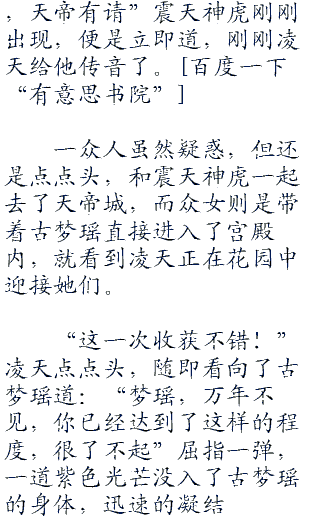 ，天帝有请”震天神虎刚刚
出现，便是立即道，刚刚凌
天给他传音了。[百度一下
“有意思书院”]
一众人虽然疑惑，但还
是点点头，和震天神虎一起
去了天帝城，而众女则是带
着古梦瑶直接进入了宫殿
内，就看到凌天正在花园中
迎接她们。
“这一次收获不错！”
凌天点点头，随即看向了古
梦瑶道：“梦瑶，万年不
见，你已经达到了这样的程
度，很了不起”屈指一弹，
一道紫色光芒没入了古梦瑶
的身体，迅速的凝结